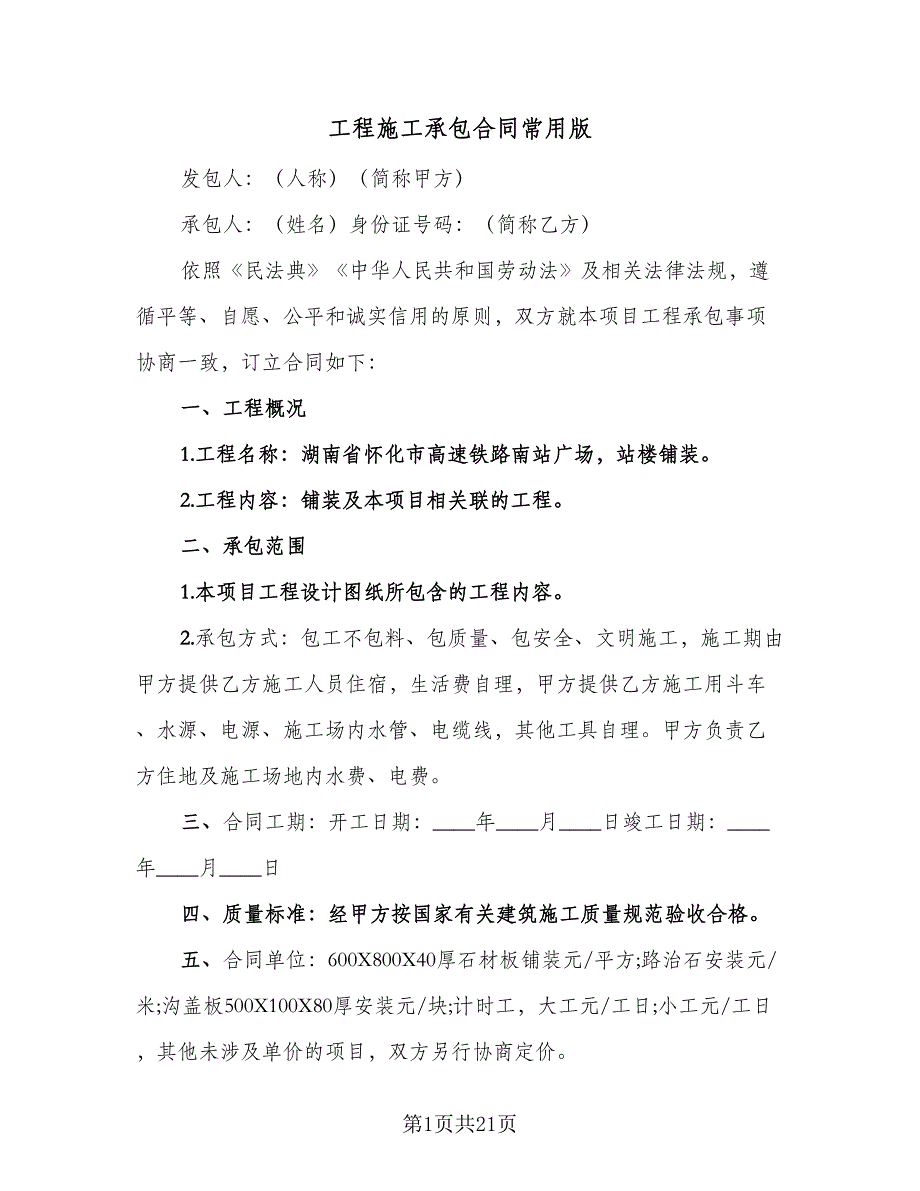 工程施工承包合同常用版
发包人：（人称）（简称甲方）
承包人：（姓名）身份证号码：（简称乙方）
依照《民法典》《中华人民共和国劳动法》及相关法律法规，遵
循平等、自愿、公平和诚实信用的原则，双方就本项目工程承包事项
协商一致，订立合同如下：
一、工程概况
1.工程名称：湖南省怀化市高速铁路南站广场，站楼铺装。
2.工程内容：铺装及本项目相关联的工程。
二、承包范围
1.本项目工程设计图纸所包含的工程内容。
2.承包方式：包工不包料、包质量、包安全、文明施工，施工期由
甲方提供乙方施工人员住宿，生活费自理，甲方提供乙方施工用斗车
、水源、电源、施工场内水管、电缆线，其他工具自理。甲方负责乙
方住地及施工场地内水费、电费。
三、合同工期：开工日期：____年____月____日竣工日期：____
年____月____日
四、质量标准：经甲方按国家有关建筑施工质量规范验收合格。
五、合同单位：600X800X40厚石材板铺装元/平方;路治石安装元/
米;沟盖板500X100X80厚安装元/块;计时工，大工元/工日;小工元/工日
，其他未涉及单价的项目，双方另行协商定价。
第1页共21页